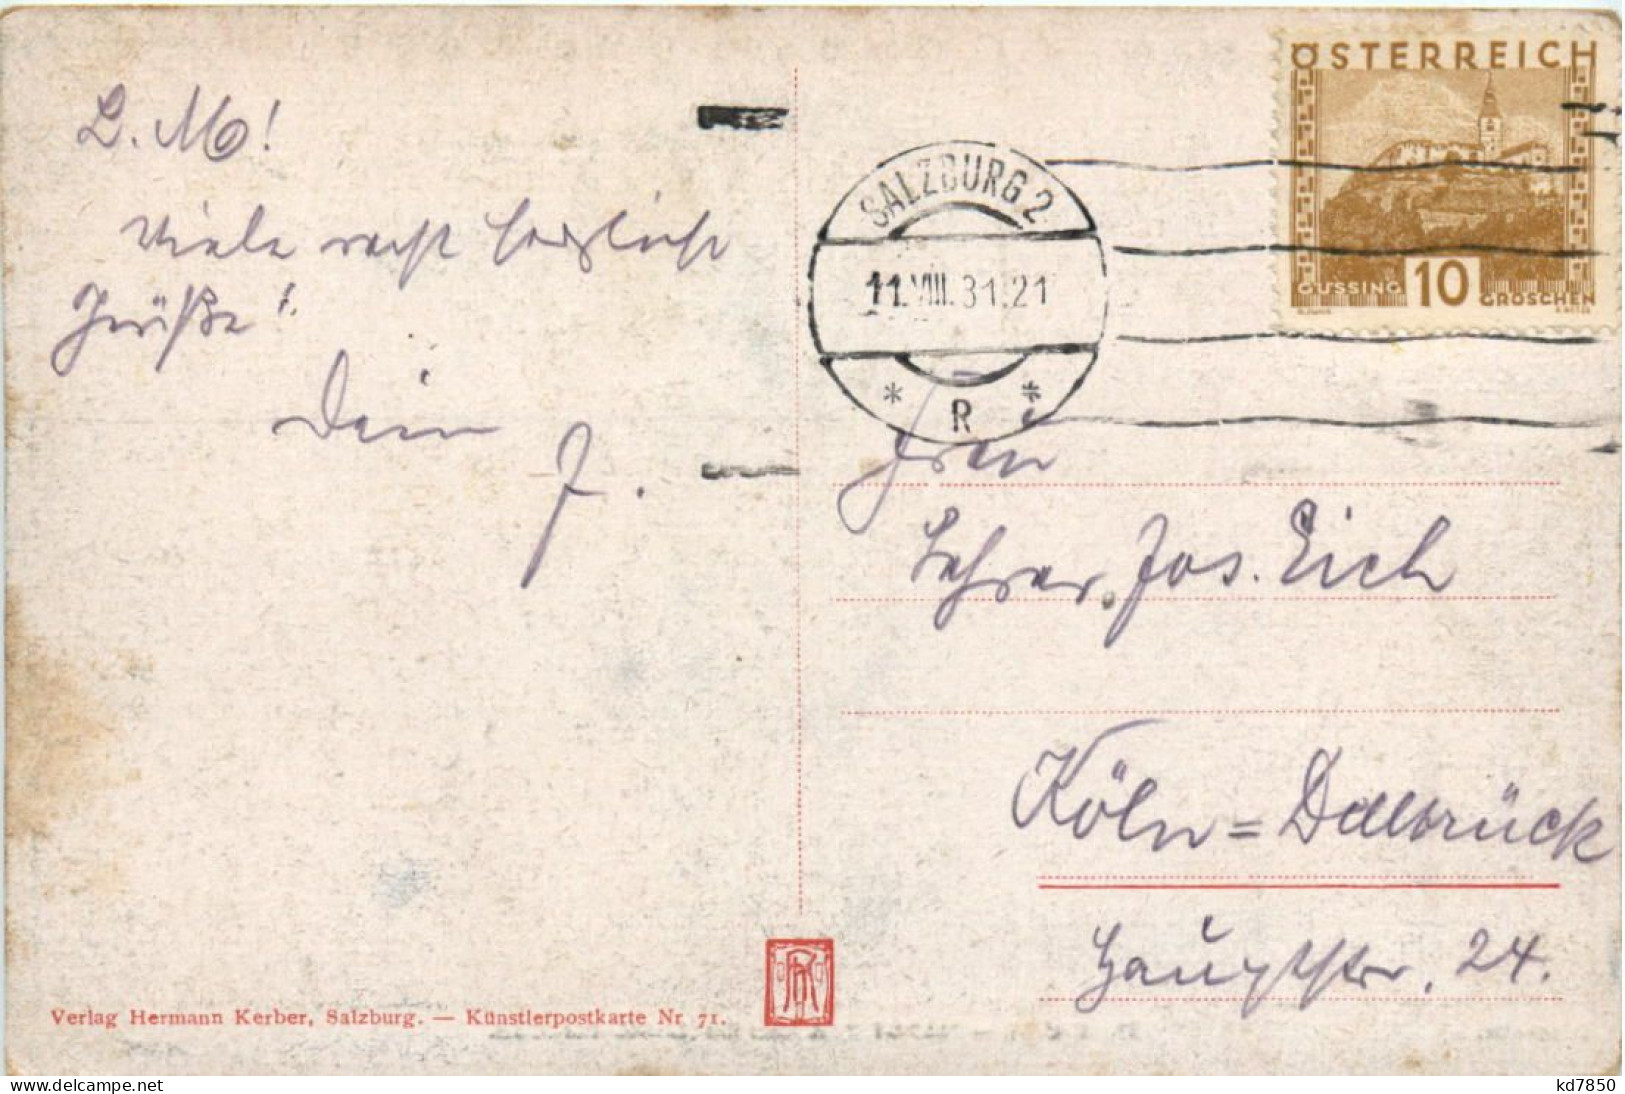 L. M!
Viele recht herzliche
Grüße!
Dein
J.
ÖSTERREICH
GÜSSING 10 GROSCHEN
SALZBURG 2
11.VIII.31.21
* R *
Lehrer Jos. Eich
Köln = Dellbrück
Hauptstr. 24.
Verlag Hermann Kerber, Salzburg. — Künstlerpostkarte Nr 71.
kd7850